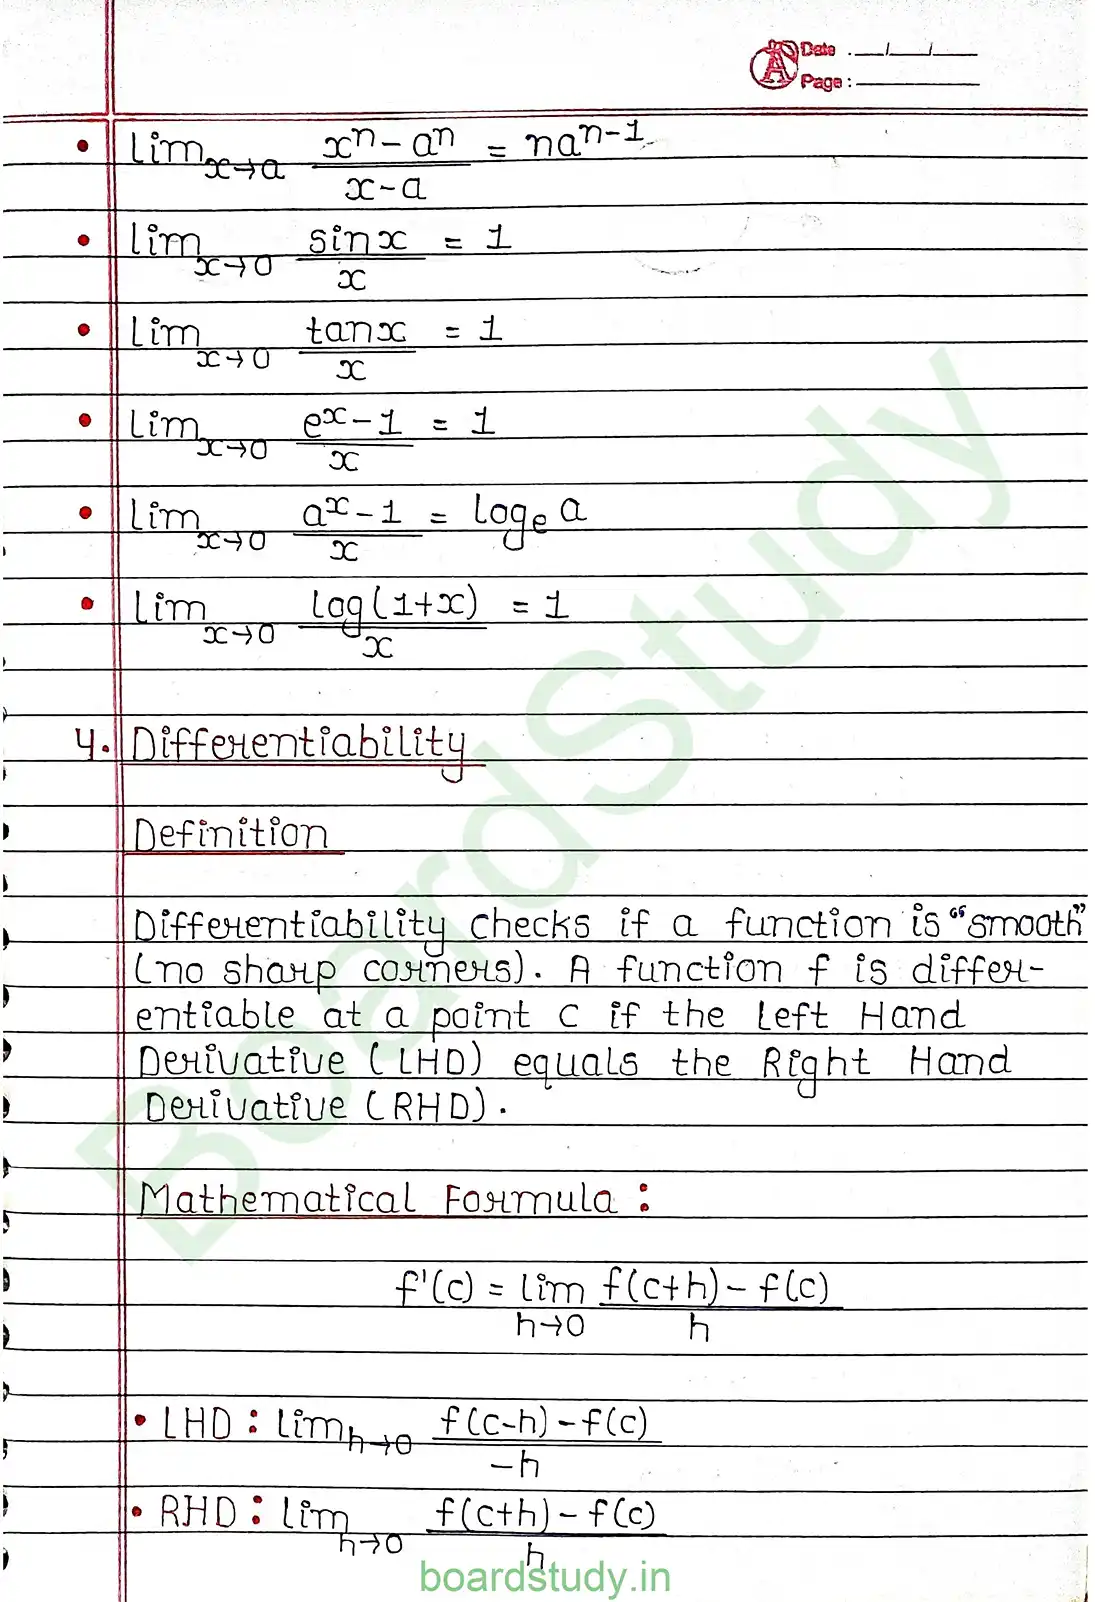 Date : __/__/__
Page : ______
• lim x→a (xⁿ - aⁿ)/(x - a) = naⁿ⁻¹
• lim x→0 sinx/x = 1
• lim x→0 tanx/x = 1
• lim x→0 (eˣ - 1)/x = 1
• lim x→0 (aˣ - 1)/x = logₑ a
• lim x→0 log(1+x)/x = 1
4. Differentiability
Definition
Differentiability checks if a function is "smooth"
(no sharp corners). A function f is differ-
entiable at a point c if the Left Hand
Derivative (LHD) equals the Right Hand
Derivative (RHD).
Mathematical Formula :
f'(c) = lim h→0 (f(c+h) - f(c))/h
• LHD : lim h→0 (f(c-h) - f(c))/-h
• RHD : lim h→0 (f(c+h) - f(c))/h
BoardStudy
boardstudy.in